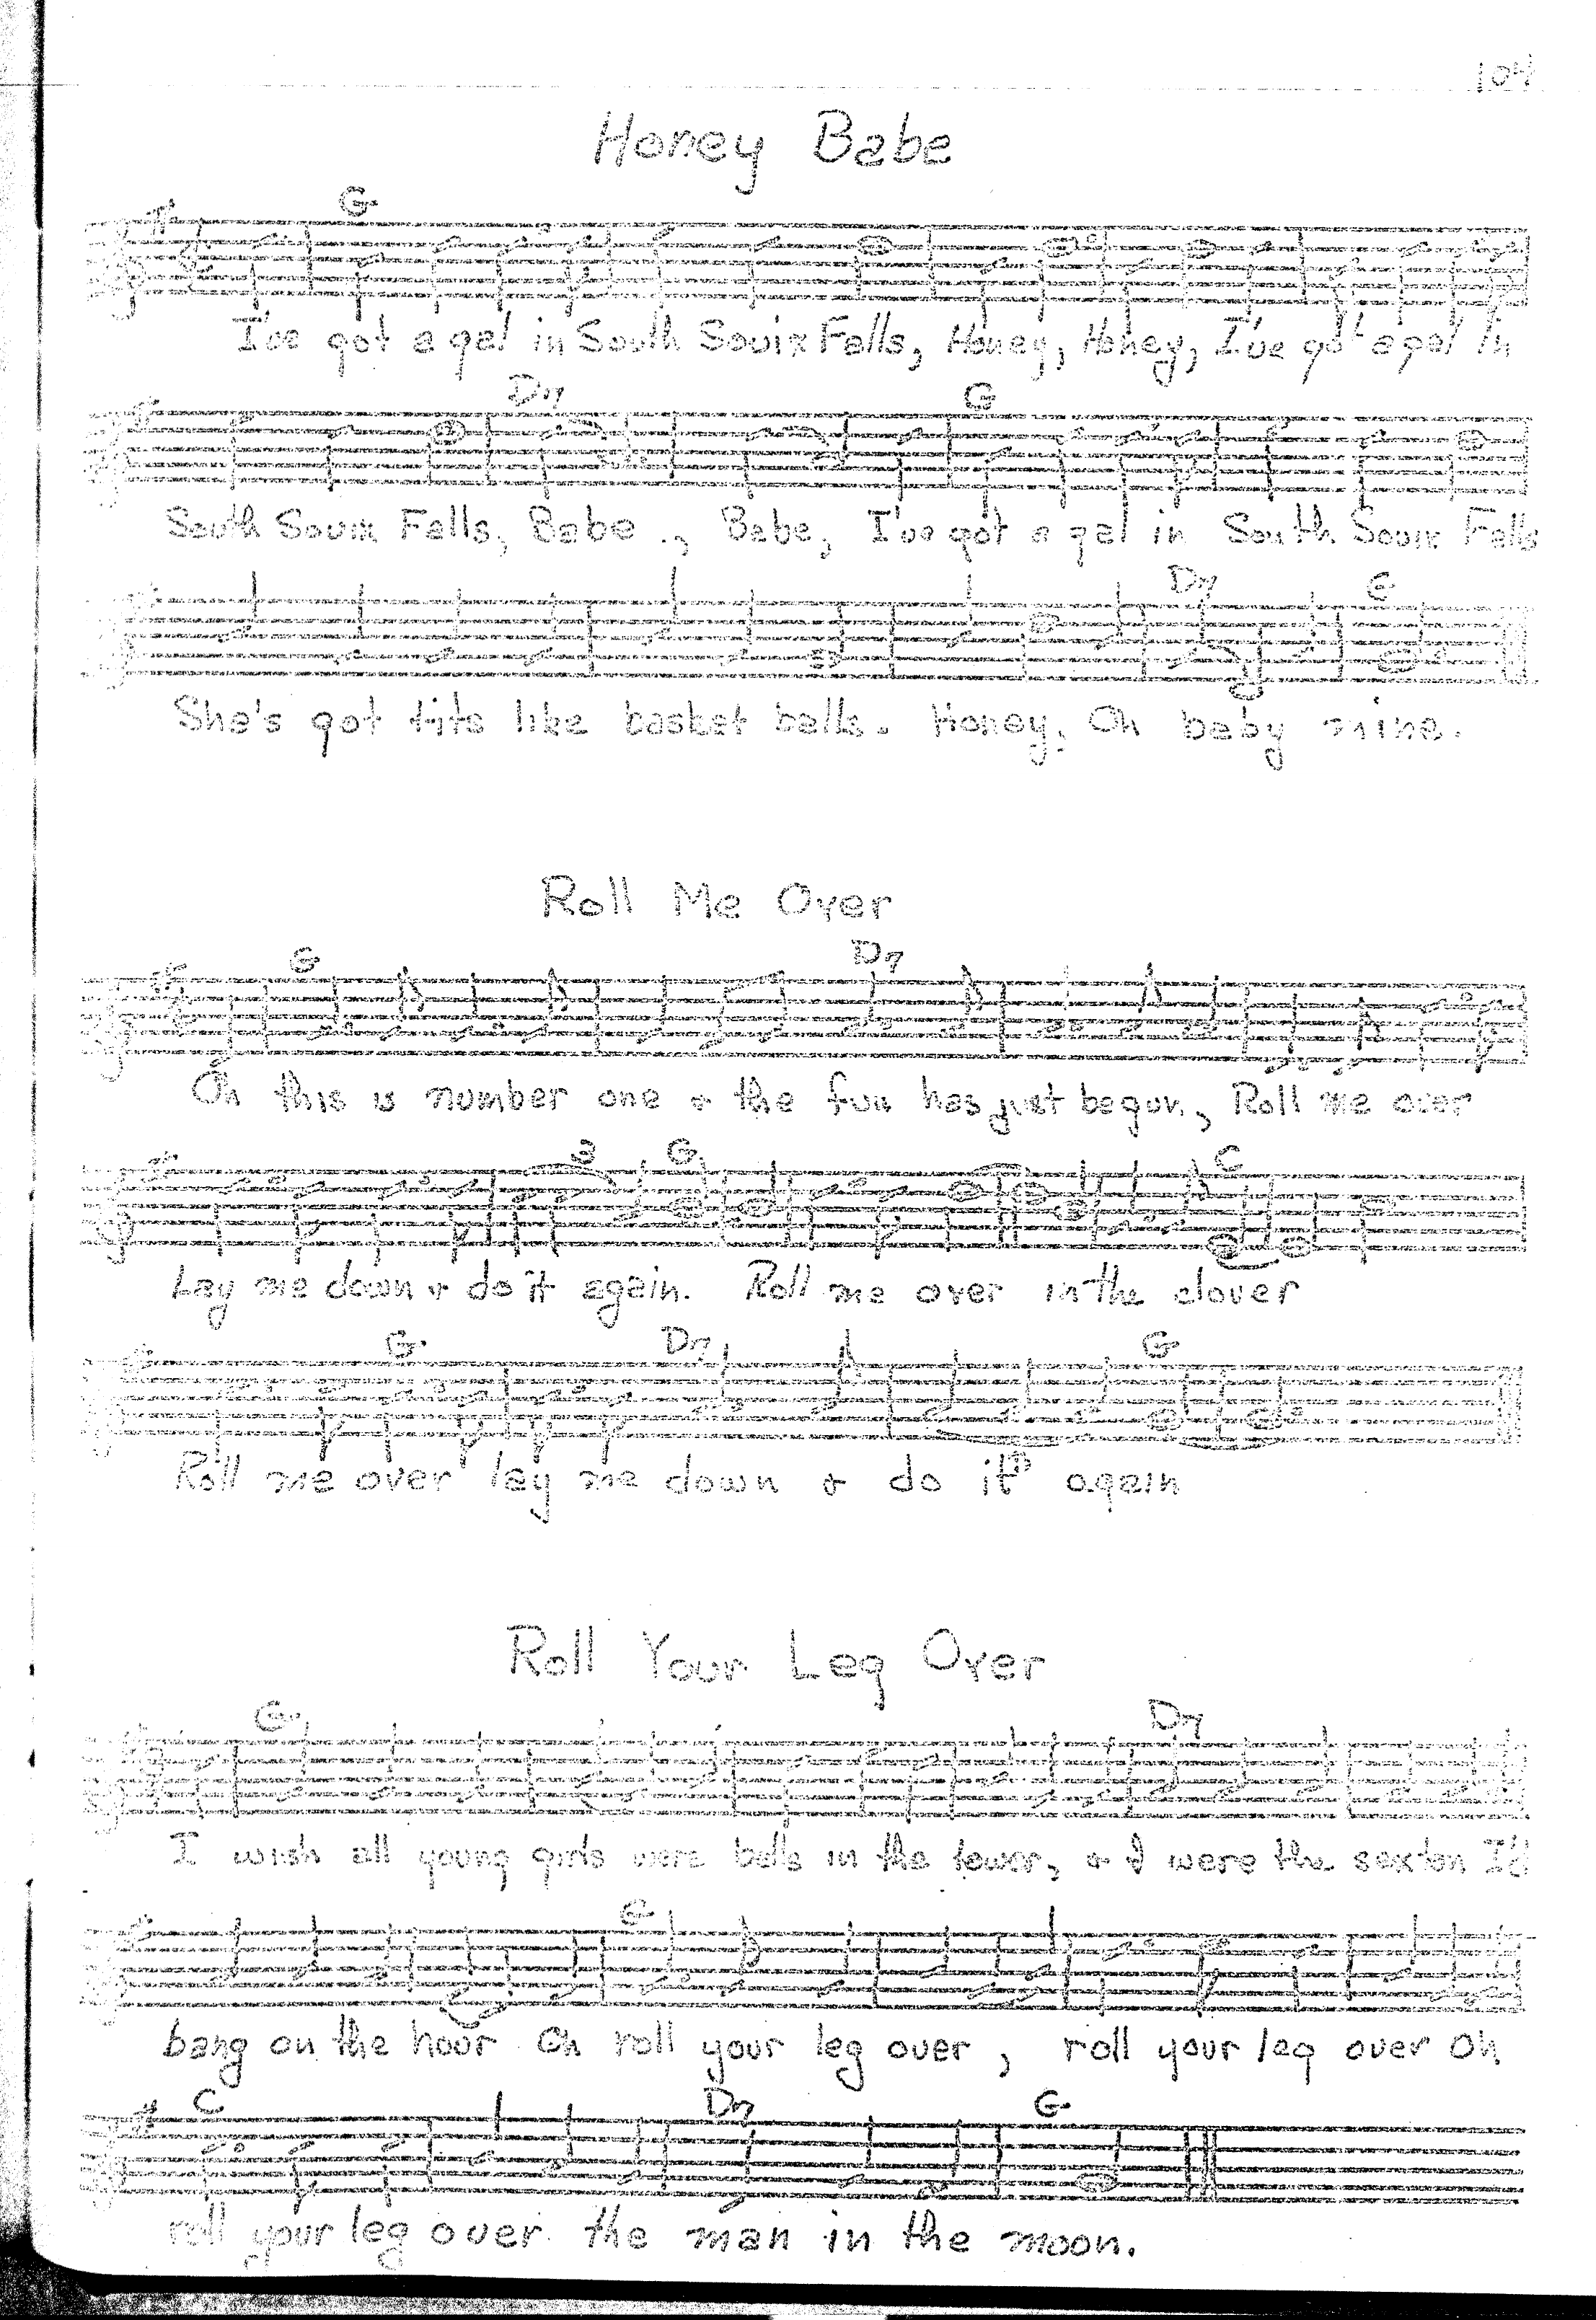 104
Honey Babe
G
I've got a gal in South Souix Falls, Honey, Honey, I've got a gal in
D7 G
South Souix Falls, Babe ., Babe, I've got a gal in South Souix Falls
D7 G
She's got tits like basket balls. Honey, Oh baby mine.
Roll Me Over
G D7
Oh this is number one & the fun has just begun, Roll me over
G C
Lay me down & do it again. Roll me over in the clover
G D7 G
Roll me over lay me down & do it again
Roll Your Leg Over
G D7
I wish all young girls were bells in the tower, & I were the sexton I'd
G
bang on the hour Oh roll your leg over, roll your leg over Oh
C D7 G
roll your leg over the man in the moon.